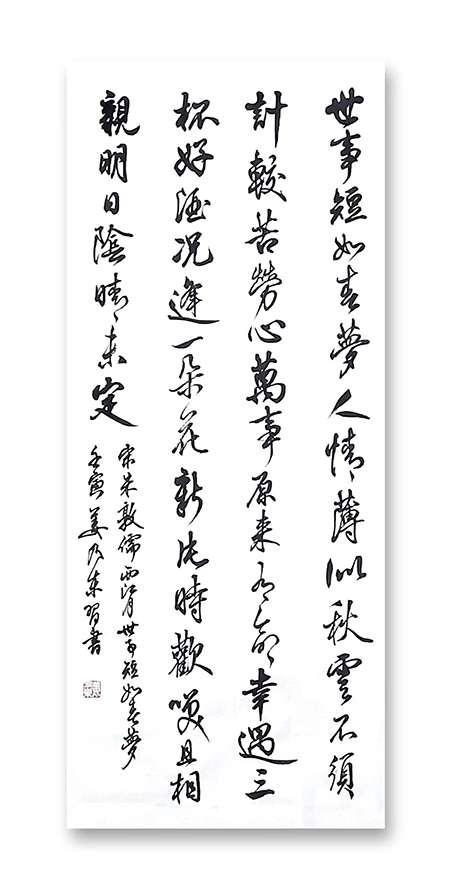 世事短如春夢人情薄似秋雲不須
計較苦勞心萬事原來有命幸遇三
杯好酒況逢一朵花新片時歡咲且相
親明日陰晴未定
宋朱敦儒西江月世事短如春夢
壬寅姜乃東習書